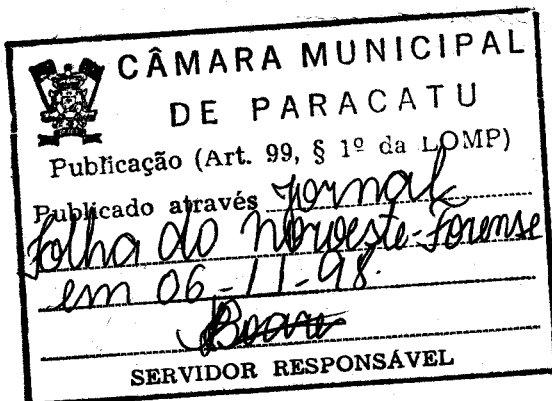 CÂMARA MUNICIPAL
DE PARACATU
Publicação (Art. 99, § 1º da LOMP)
Publicado através Jornal
Folha do Noroeste-Forense
em 06-11-98.
SERVIDOR RESPONSÁVEL